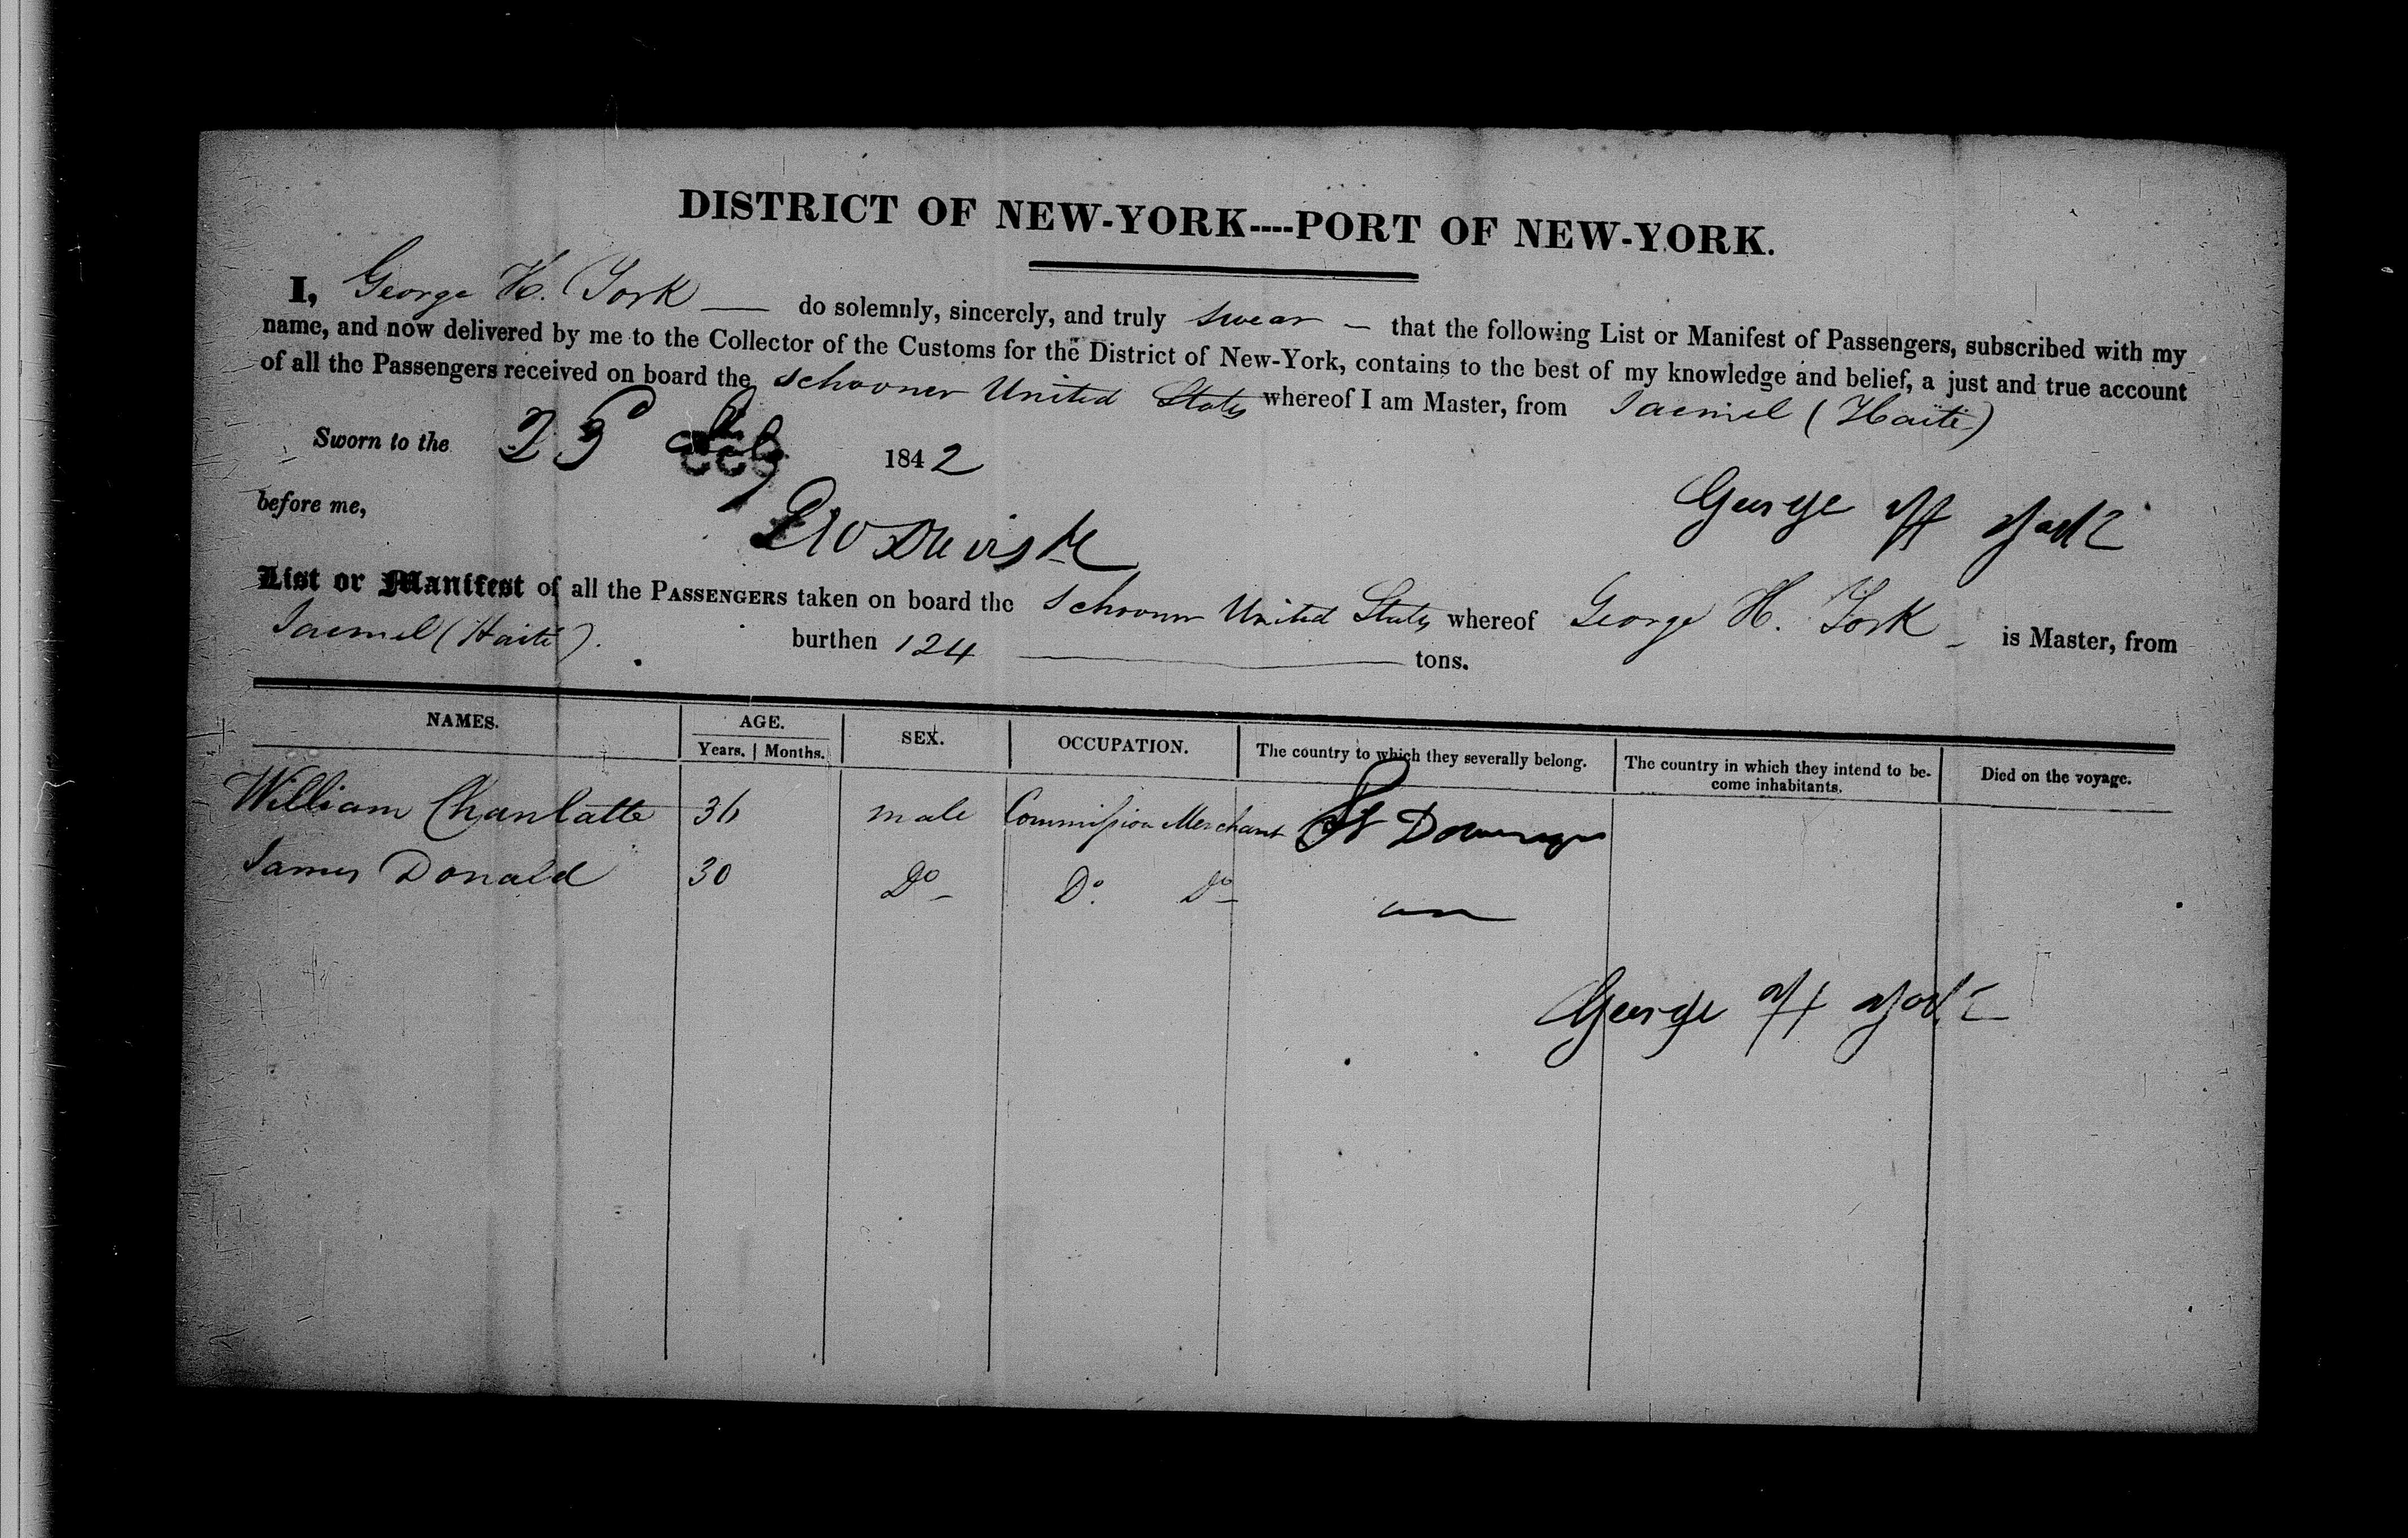 DISTRICT OF NEW-YORK----PORT OF NEW-YORK.
I, George H. York — do solemnly, sincerely, and truly swear – that the following List or Manifest of Passengers, subscribed with my
name, and now delivered by me to the Collector of the Customs for the District of New-York, contains to the best of my knowledge and belief, a just and true account
of all the Passengers received on board the Schooner United States whereof I am Master, from Jacmel (Haiti)
Sworn to the 25 1842
before me,
George H York
List or Manifest of all the PASSENGERS taken on board the Schooner United States whereof George H. York – is Master, from
Jacmel (Haiti). burthen 124 — tons.
NAMES. AGE. SEX. OCCUPATION. The country to which they severally belong. The country in which they intend to be- Died on the voyage.
Years. Months. come inhabitants.
William Chanlatte 36 male Commission Merchant St Domingo
James Donald 30 Do Do Do
George H York